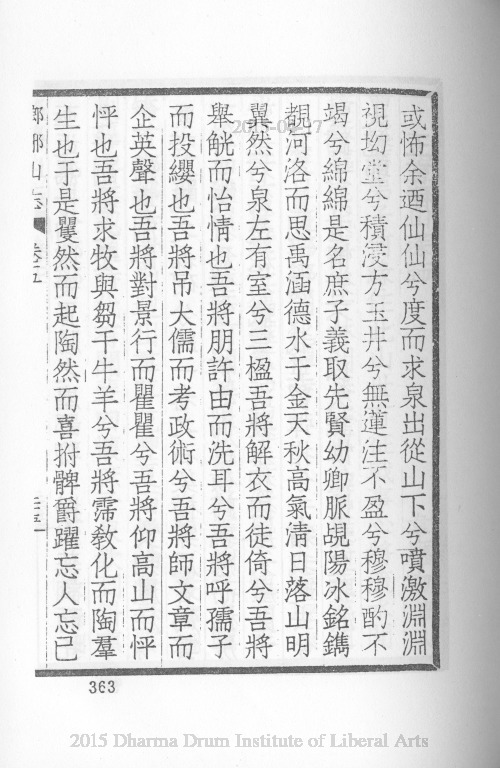 或怖余迺仙仙兮度而求泉出從山下兮噴激淵淵
視坳堂兮積浸方玉井兮無蓮注不盈兮穆穆酌不
竭兮綿綿是名庶子義取先賢幼卿脈覘陽冰銘鐫
覩河洛而思禹涵德水于金天秋高氣清日落山明
翼然兮泉左有室兮三楹吾將解衣而徒倚兮吾將
舉觥而怡情也吾將朋許由而洗耳兮吾將呼孺子
而投纓也吾將吊大儒而考政術兮吾將師文章而
企英聲也吾將對景行而瞿瞿兮吾將仰高山而怦
怦也吾將求牧與芻干牛羊兮吾將霈教化而陶羣
生也于是矍然而起陶然而喜拊髀爵躍忘人忘己
山志 卷十五
363
2015 Dharma Drum Institute of Liberal Arts